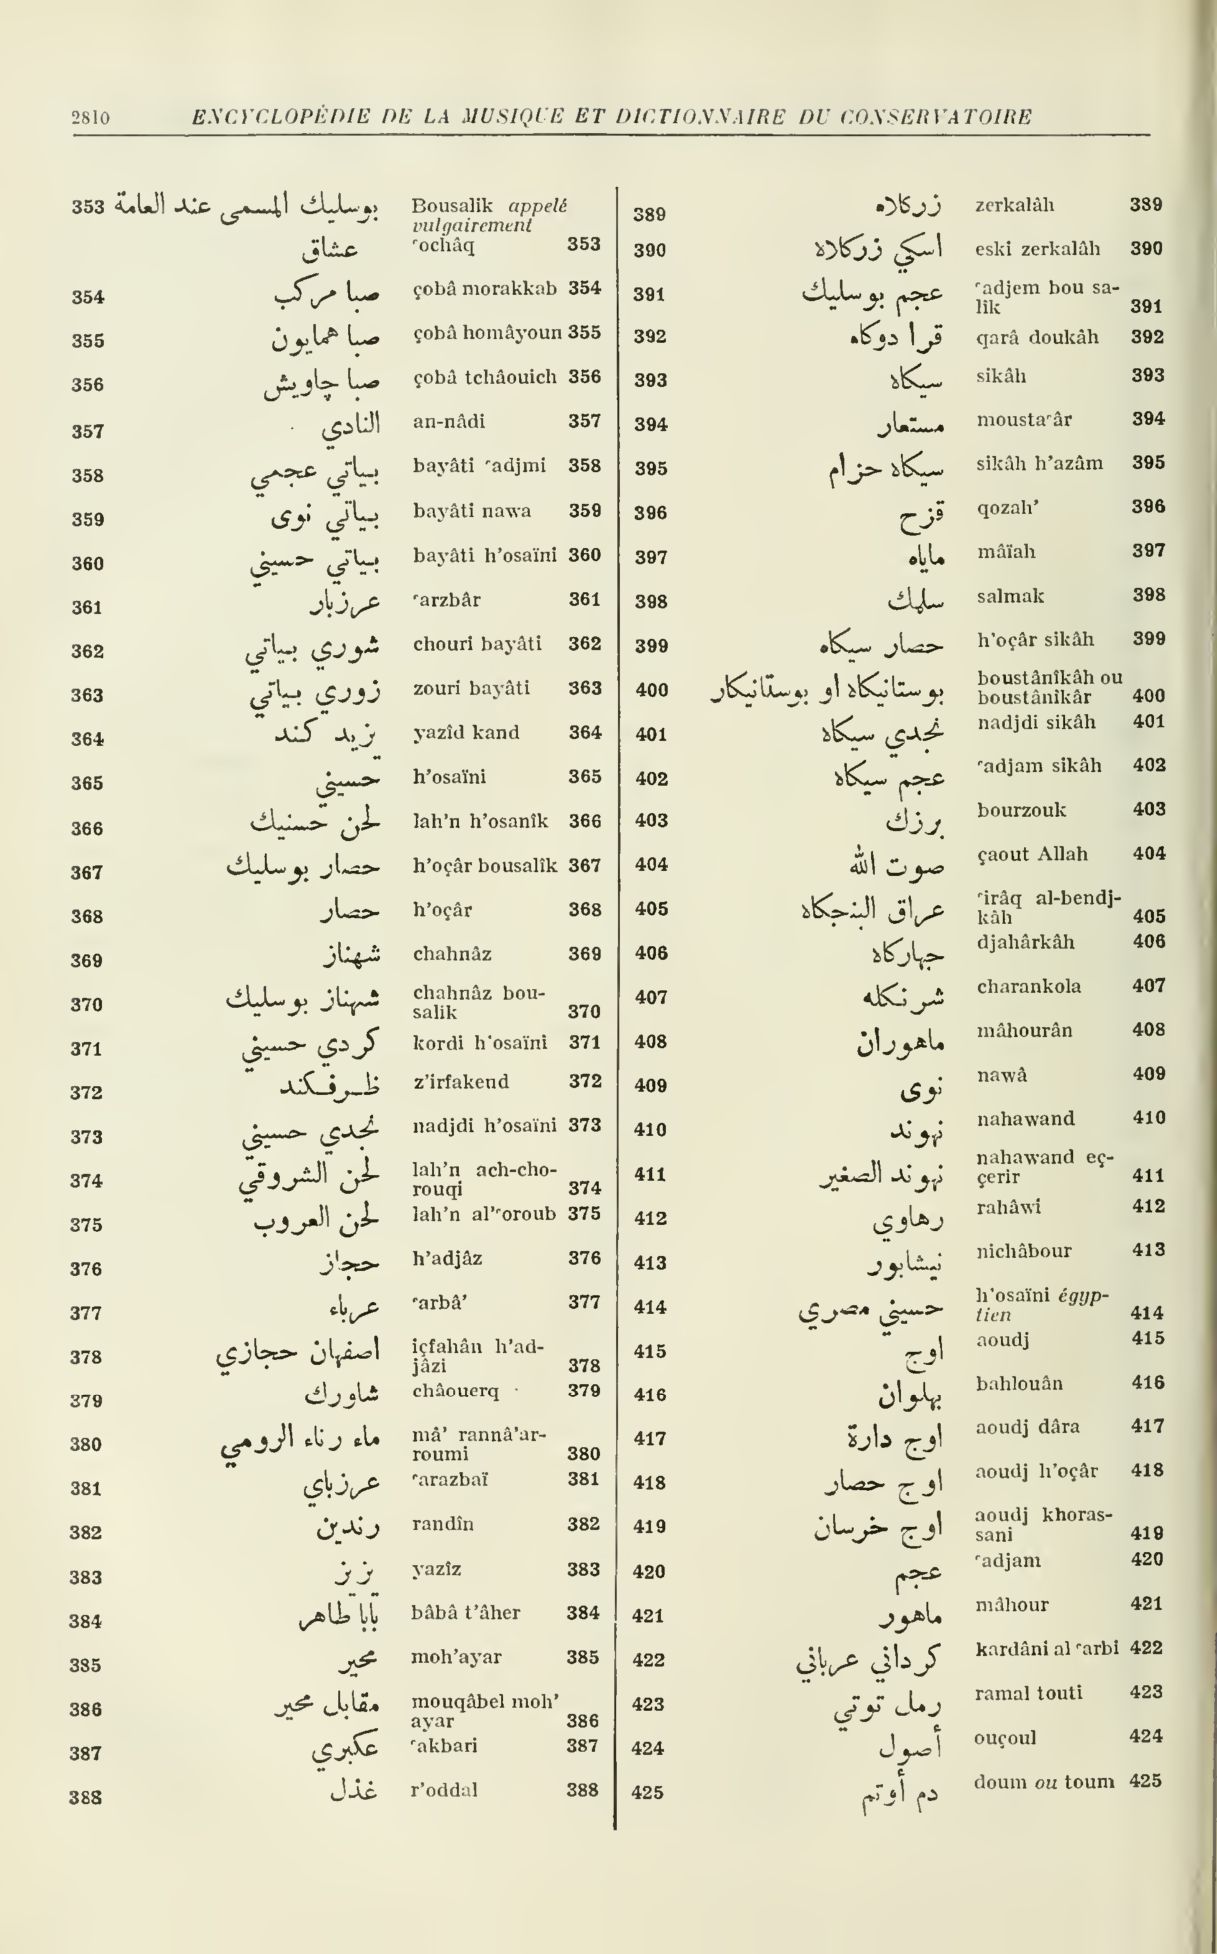 2810 ENCYCLOPÉDIE DE LA MUSIQUE ET DICTIONNAIRE DU CONSERVATOIRE
353 بوسليك المسمى عند العامة Bousalik appelé
vulgairement
عشاق ʿochâq 353
354 صبا مركب çobâ morakkab 354
355 صبا همايون çobâ homâyoun 355
356 صبا چاويش çobâ tchâouich 356
357 النادي an-nâdi 357
358 بياتي عجمي bayâti ʿadjmi 358
359 بياتي نوى bayâti nawa 359
360 بياتي حسيني bayâti h’osaïni 360
361 عرزبار ʿarzbâr 361
362 شوري بياتي chouri bayâti 362
363 زوري بياتي zouri bayâti 363
364 يزيد كند yazîd kand 364
365 حسيني h’osaïni 365
366 لحن حسنيك lah’n h’osanîk 366
367 حصار بوسليك h’oçâr bousalîk 367
368 حصار h’oçâr 368
369 شهناز chahnâz 369
370 شهناز بوسليك chahnâz bou-
salik 370
371 كردي حسيني kordi h’osaïni 371
372 ظرفكند z’irfakend 372
373 نجدي حسيني nadjdi h’osaïni 373
374 لحن الشروقي lah’n ach-cho-
rouqi 374
375 لحن العروب lah’n al’ʿoroub 375
376 حجاز h’adjâz 376
377 عرباء ʿarbâ’ 377
378 اصفهان حجازي içfahân h’ad-
jâzi 378
379 شاورك châouerq 379
380 ماء رناء الرومي mâ’ rannâ’ar-
roumi 380
381 عرزباي ʿarazbaï 381
382 رندين randîn 382
383 يزيز yazîz 383
384 بابا طاهر bâbâ t’âher 384
385 محير moh’ayar 385
386 مقابل محير mouqâbel moh’
ayar 386
387 عكبري ʿakbari 387
388 غذل r’oddal 388
389 زركلاه zerkalâh 389
390 اسكي زركلاه eski zerkalâh 390
391 عجم بوسليك ʿadjem bou sa-
lik 391
392 قرا دوكاه qarâ doukâh 392
393 سيكاه sikâh 393
394 مستعار moustaʿâr 394
395 سيكاه حزام sikâh h’azâm 395
396 قزح qozah’ 396
397 ماياه mâïah 397
398 سلمك salmak 398
399 حصار سيكاه h’oçâr sikâh 399
400 بوستانيكاه او بوستانيكار boustânîkâh ou
boustânikâr 400
401 نجدي سيكاه nadjdi sikâh 401
402 عجم سيكاه ʿadjam sikâh 402
403 برزك bourzouk 403
404 صوت الله çaout Allah 404
405 عراق البنجكاه ʿirâq al-bendj-
kâh 405
406 جهاركاه djahârkâh 406
407 شرنكله charankola 407
408 ماهوران mâhourân 408
409 نوى nawâ 409
410 نهوند nahawand 410
411 نهوند الصغير nahawand eç-
çerir 411
412 رهاوي rahâwi 412
413 نيشابور nichâbour 413
414 حسيني مصري h’osaïni égyp-
tien 414
415 اوج aoudj 415
416 بهلوان bahlouân 416
417 اوج دارة aoudj dâra 417
418 اوج حصار aoudj h’oçâr 418
419 اوج خرسان aoudj khoras-
sani 419
420 عجم ʿadjam 420
421 ماهور mâhour 421
422 كرداني عرباني kardâni al ʿarbi 422
423 رمل توتي ramal touti 423
424 أصول ouçoul 424
425 دم أوتم doum ou toum 425